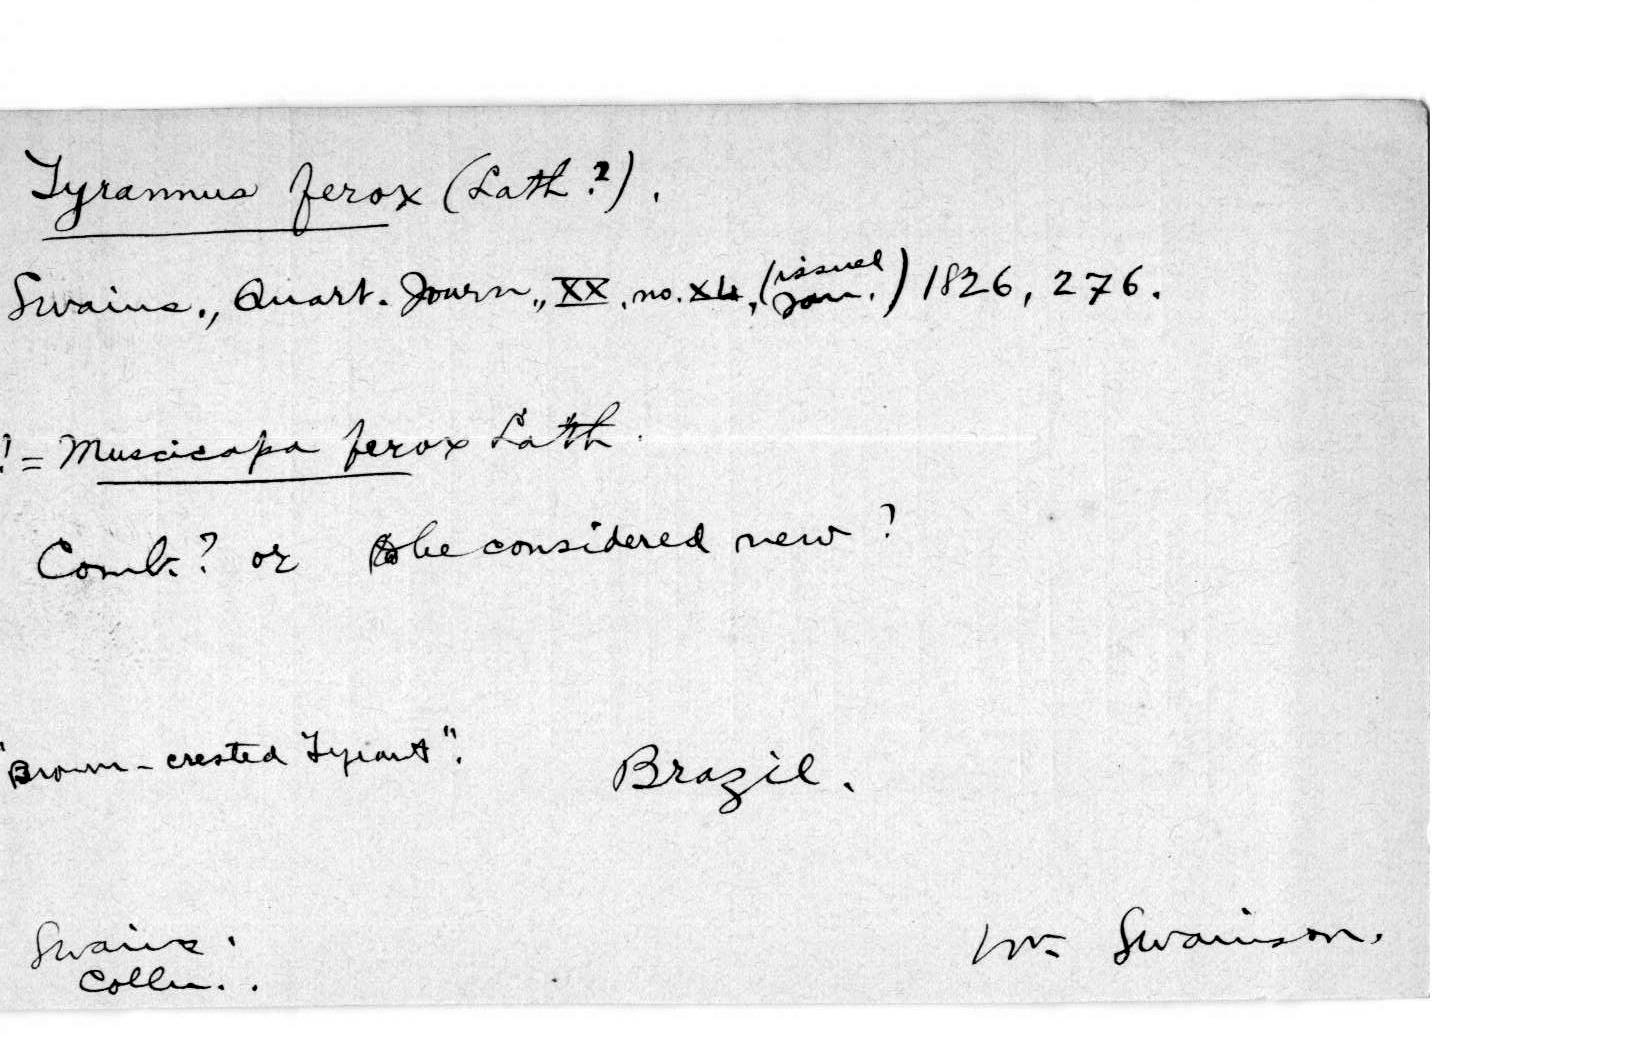 Tyrannus ferox (Lath.?).
Swains., Quart. Journ., XX, no. XL, (issued Jan.) 1826, 276.
?= Muscicapa ferox Lath.
Comb.? or to be considered new?
"Brown-crested Tyrant". Brazil.
Swains. Wm Swainson.
Colln..